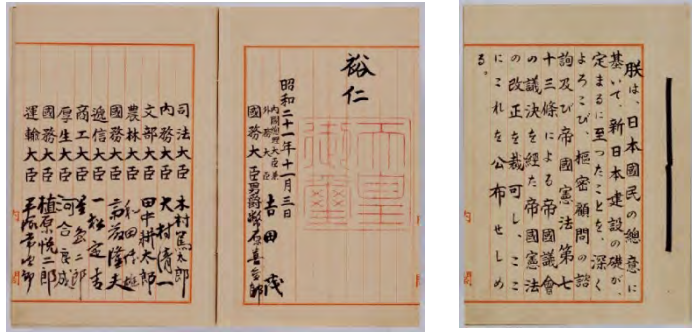 朕は、日本國民の總意に
基いて、新日本建設の礎が、
定まるに至つたことを、深く
よろこび、樞密顧問の諮
詢及び帝國憲法第七
十三條による帝國議會
の議決を経た帝國憲法
の改正を裁可し、ここ
にこれを公布せしめ
る。
内閣
裕仁
天皇御璽
昭和二十一年十一月三日
内閣總理大臣兼
外務大臣 吉田茂
國務大臣 男爵幣原喜重郎
司法大臣 木村篤太郎
内務大臣 大村清一
文部大臣 田中耕太郎
農林大臣 和田博雄
國務大臣 斎藤隆夫
遞信大臣 一松定吉
商工大臣 星島二郎
厚生大臣 河合良成
國務大臣 植原悦二郎
運輸大臣 平塚常次郎
内閣